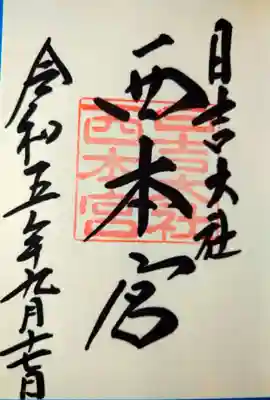 日吉大社
西本宮
令和五年九月十七日
日吉大社
西本宮